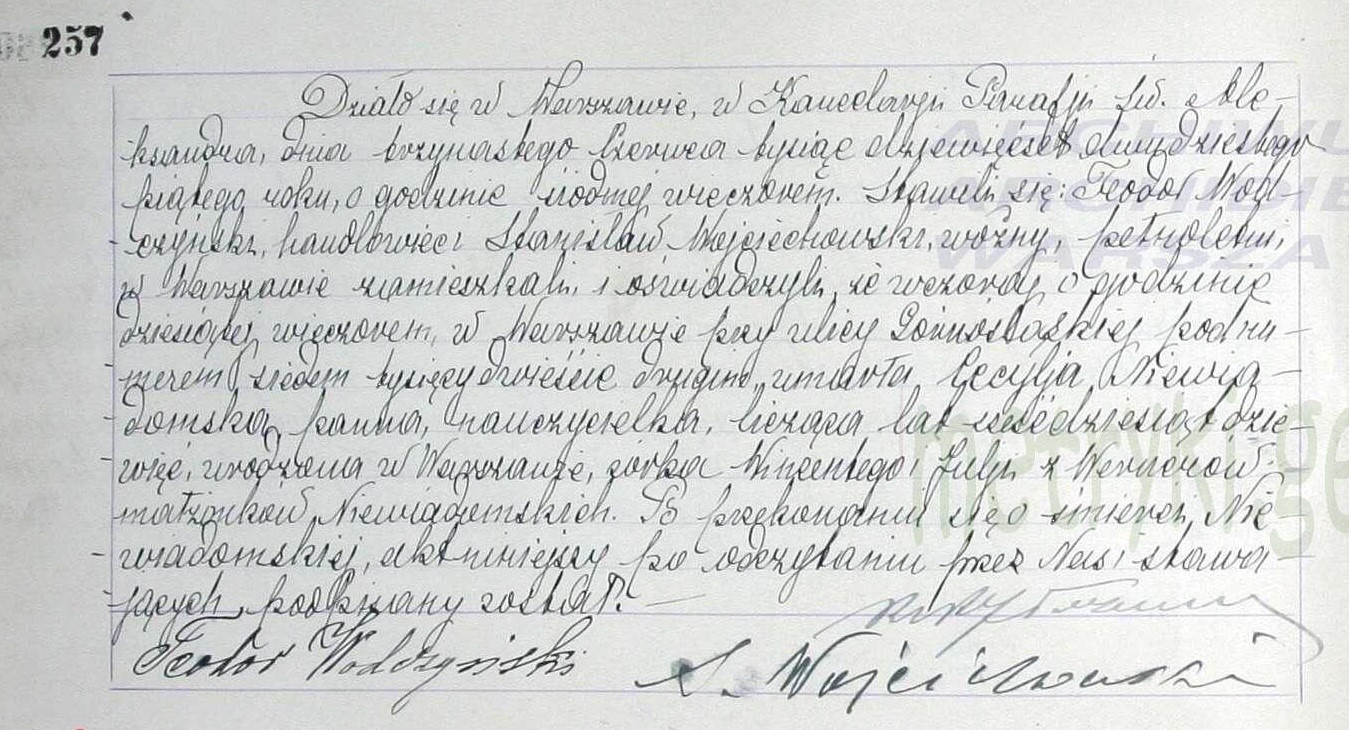 257
Działo się w Warszawie, w Kancelarji Parafji św. Ale-
ksandra, dnia trzynastego Czerwca tysiąc dziewięćset dwudziestego
piątego roku, o godzinie siódmej wieczorem. Stawili się: Teodor Wod-
czyński, handlowiec i Stanisław Wojciechowski, woźny, pełnoletni,
w Warszawie zamieszkali, i oświadczyli, że wczoraj o godzinie
dziesiątej wieczorem, w Warszawie przy ulicy Górnośląskiej pod nu-
merem siedem tysięcy dwieście drugim, umarła Cecylja Niewia-
domska, panna, nauczycielka, licząca lat sześćdziesiąt dzie-
więć, urodzona w Warszawie, córka Wincentego i Julji z Wernerów
małżonków Niewiadomskich. Po przekonaniu się o śmierci Nie-
wiadomskiej, akt niniejszy po odczytaniu przez Nas i stawa-
jących podpisany został. —
Teodor Wodczyński
S. Wojciechowski
ARCHIWU
ARCHIDIE
WARSZA
metryki.ge